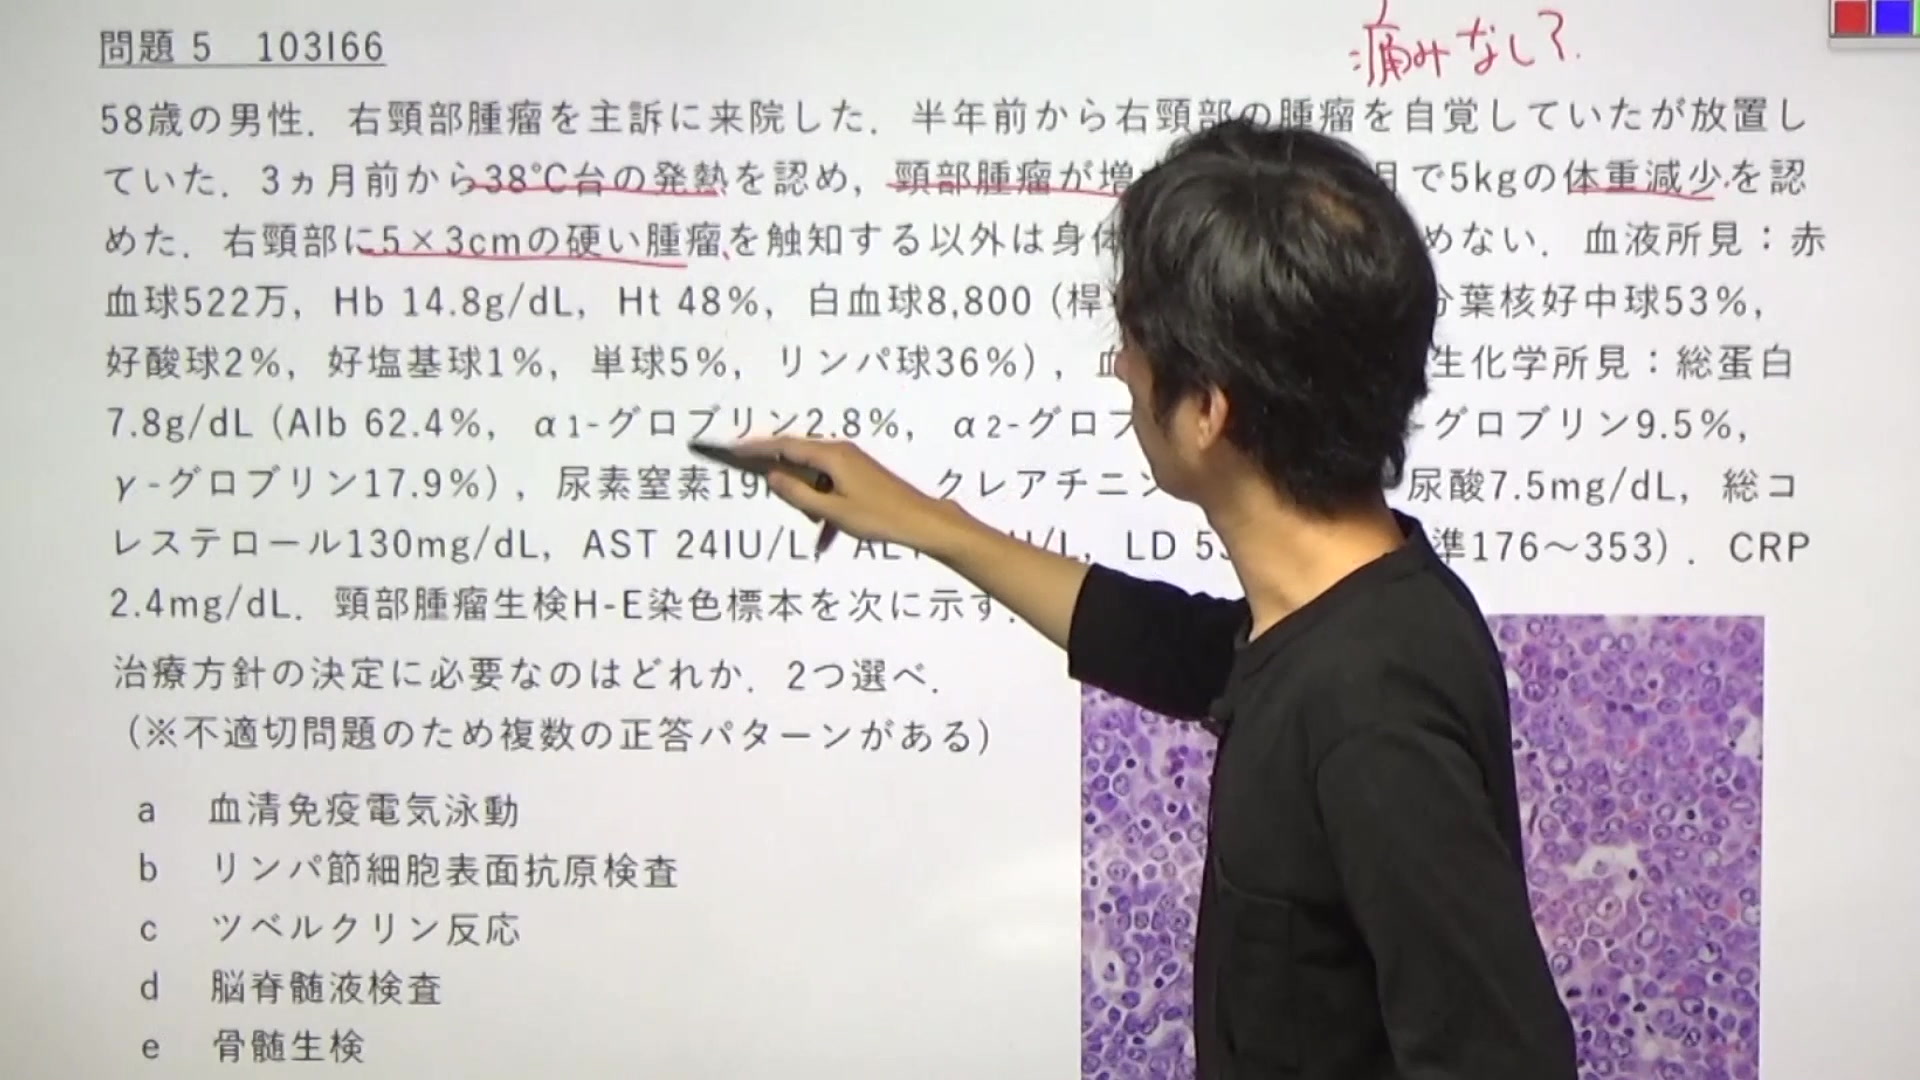 問題 5　103I66
痛みなし?
58歳の男性．右頸部腫瘤を主訴に来院した．半年前から右頸部の腫瘤を自覚していたが放置し
ていた．3ヵ月前から38℃台の発熱を認め，頸部腫瘤が増 月で5kgの体重減少を認
めた．右頸部に5×3cmの硬い腫瘤を触知する以外は身体 めない．血液所見：赤
血球522万，Hb 14.8g/dL，Ht 48%，白血球8,800 (桿 分葉核好中球53%，
好酸球2%，好塩基球1%，単球5%，リンパ球36%)， 生化学所見：総蛋白
7.8g/dL (Alb 62.4%，α1-グロブリン2.8%，α2-グロブ -グロブリン9.5%，
γ-グロブリン17.9%)，尿素窒素19 クレアチニン 尿酸7.5mg/dL，総コ
レステロール130mg/dL，AST 24IU/L， U/L，LD 準176～353)．CRP
2.4mg/dL．頸部腫瘤生検H-E染色標本を次に示す．
治療方針の決定に必要なのはどれか．2つ選べ．
(※不適切問題のため複数の正答パターンがある)
a　血清免疫電気泳動
b　リンパ節細胞表面抗原検査
c　ツベルクリン反応
d　脳脊髄液検査
e　骨髄生検